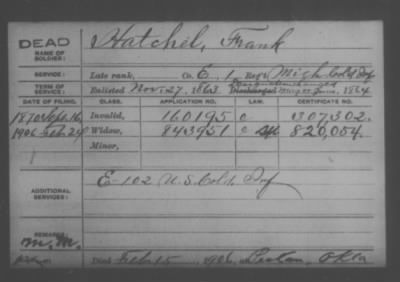 DEAD Hatchel, Frank
NAME OF SOLDIER:
SERVICE: Late rank, Co. E, 1 Reg't Mich Cold Inf
TERM OF SERVICE: Enlisted Nov. 27, 1863 Discharged June, 1864
DATE OF FILING. CLASS. APPLICATION NO. LAW. CERTIFICATE NO.
1870 Sept. 16 Invalid, 160195 C 307,302.
1906 Feb 24 Widow, 843951 C 820,054.
Minor,
ADDITIONAL SERVICES: E-102 U.S. Cold. Inf
REMARKS:
M.M.
Died Feb 15, 1906, at Okla